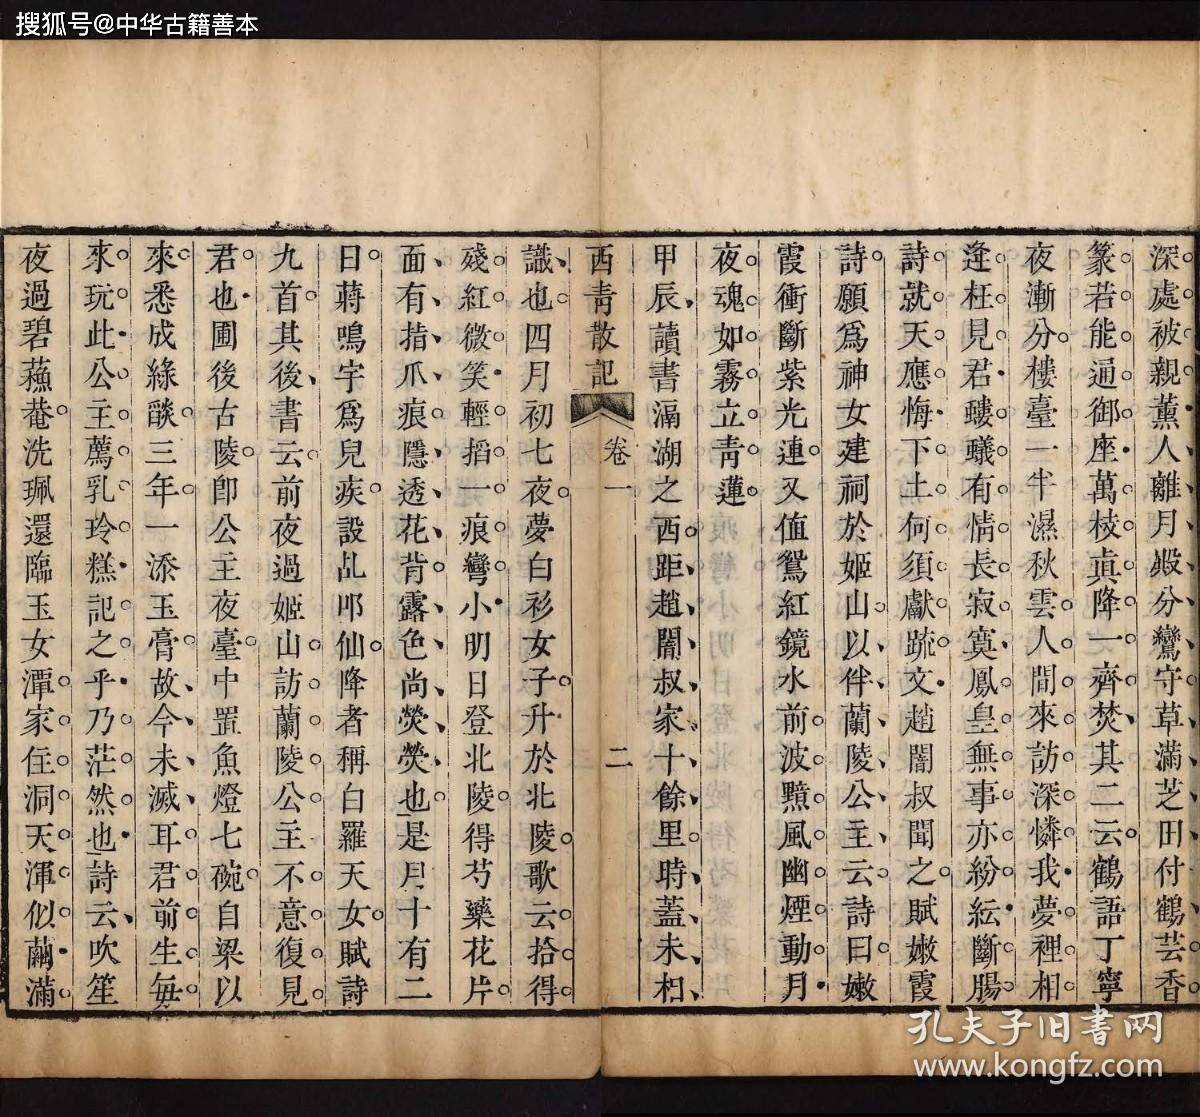 搜狐号@中华古籍善本
深處被親薰人離月殿分鸞守草滿芝田付鶴芸香
篆若能通御座萬枝眞降一齊焚其二云鶴語丁寧
夜漸分樓臺一半濕秋雲人間來訪深憐我夢裡相
逢枉見君螻蟻有情長寂寞鳳皇無事亦紛紜斷腸
詩就天應悔下土何須獻疏文趙闇叔聞之賦嫩霞
詩願爲神女建祠於姬山以伴蘭陵公主云詩曰嫩
霞衝斷紫光連又值鴛紅鏡水前波黯風幽煙動月
夜魂如霧立靑蓮
甲辰讀書滆湖之西距趙闇叔家十餘里時蓋未相
西靑散記 卷一 二
識也四月初七夜夢白衫女子升於北陵歌云拾得
殘紅微笑輕搯一痕彎小明日登北陵得芍藥花片
面有指爪痕隱透花背露色尚熒熒也是月十有二
日蔣鳴宇爲兒疾設乩叩仙降者稱白羅天女賦詩
九首其後書云前夜過姬山訪蘭陵公主不意復見
君也圃後古陵卽公主夜臺中罡魚燈七碗自梁以
來悉成綠燄三年一添玉膏故今未滅耳君前生每
來玩此公主薦乳玲糕記之乎乃茫然也詩云吹笙
夜過碧蘓菴洗珮還臨玉女潭家住洞天渾似繭滿
孔夫子旧书网
www.kongfz.com